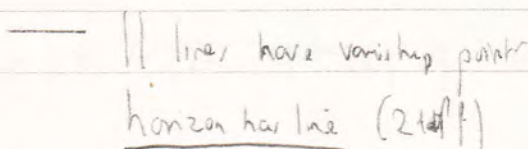 || lines have vanishing point
horizon has line (2